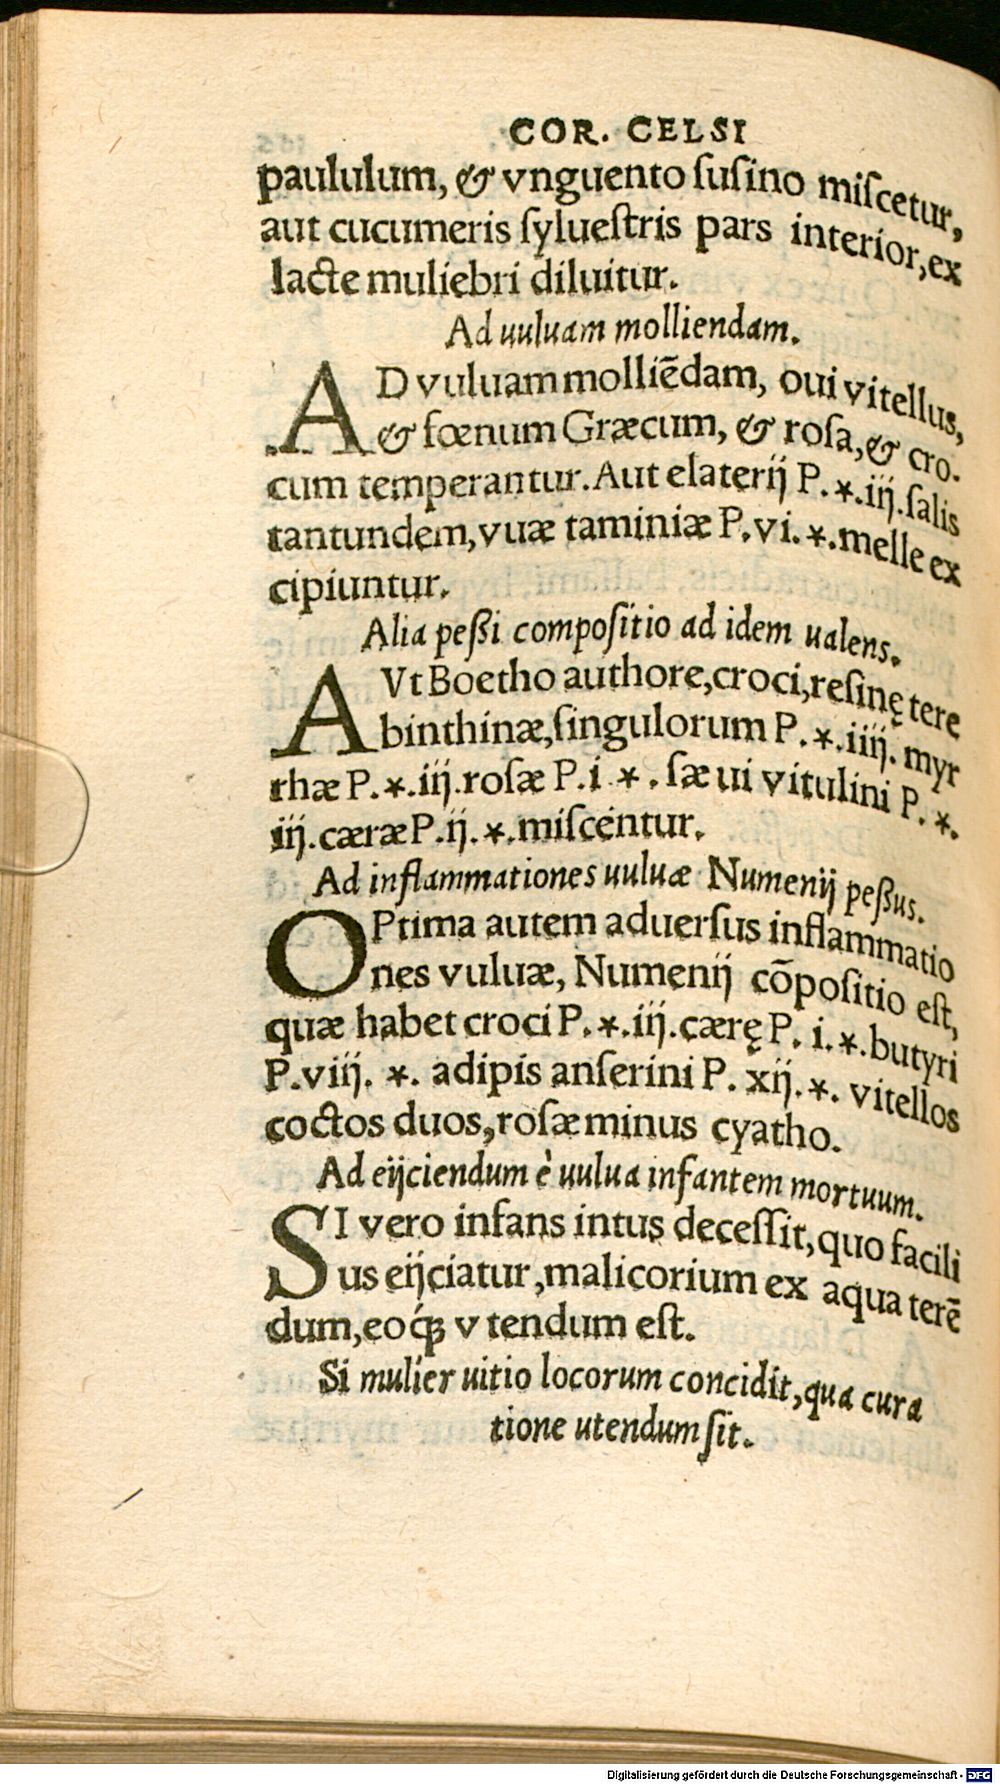 COR. CELSI
paululum, & vnguento ſuſino miſcetur,
aut cucumeris ſylueſtris pars interior, ex
lacte muliebri diluitur.
Ad uuluam molliendam.
AD vuluam molliēdam, oui vitellus,
& fœnum Græcum, & roſa, & cro.
cum temperantur. Aut elaterij P. *. iij. ſalis
tantundem, vuæ taminiæ P. vi. *. melle ex
cipiuntur.
Alia peßi compoſitio ad idem ualens.
AVt Boetho authore, croci, reſinę tere
binthinæ, ſingulorum P. *. iiij. myr
rhæ P. *. iij. roſæ P. i *. ſæ ui vitulini P. *.
iij. cæræ P. ij. *. miſcentur.
Ad inflammationes uuluæ Numenij peßus.
OPtima autem aduerſus inflammatio
nes vuluæ, Numenij cōpoſitio eſt,
quæ habet croci P. *. iij. cærę P. i. *. butyri
P. viij. *. adipis anſerini P. xij. *. vitellos
coctos duos, roſæ minus cyatho.
Ad eijciendum è uulua infantem mortuum.
SI vero infans intus deceſſit, quo facili
us eijciatur, malicorium ex aqua terē
dum, eoq́; v tendum eſt.
Si mulier uitio locorum concidit, qua cura
tione utendum ſit.
Digitalisierung gefördert durch die Deutsche Forschungsgemeinschaft - DFG